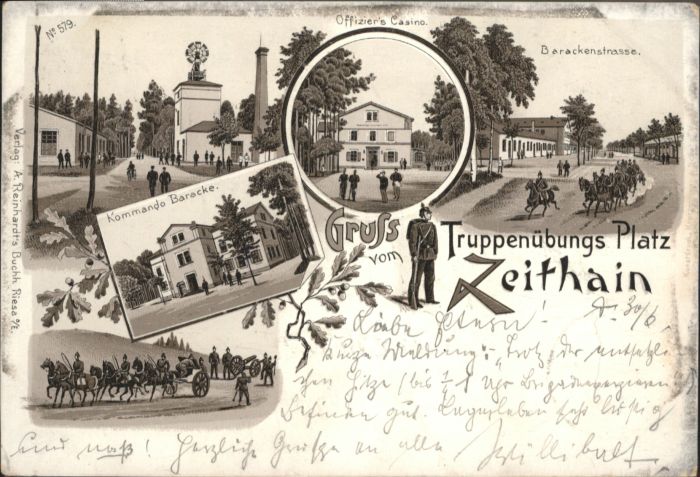 No 579.
Offizier's Casino.
Barackenstrasse.
Verlag: A. Reinhardt's Buchh. Riesa a/E.
Kommando Baracke.
Gruss
vom
Truppenübungs Platz
Zeithain
d. 30/6.
Liebe Eltern!
kurze Meldung: Trotz der entsetzli-
chen Hitze (bis 1/2 1 Uhr Brigadeexerzieren
befinden gut. Lagerleben sehr lustig
und naß! Herzliche Grüße an alle Willibalt